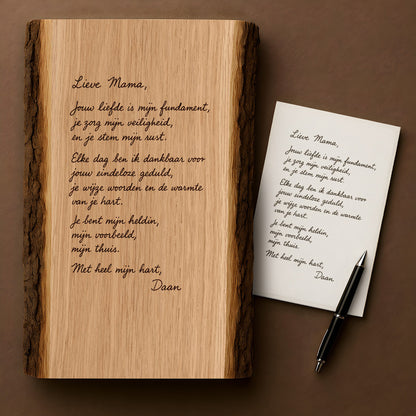 Lieve Mama,
Jouw liefde is mijn fundament,
je zorg mijn veiligheid,
en je stem mijn rust.
Elke dag ben ik dankbaar voor
jouw eindeloze geduld,
je wijze woorden en de warmte
van je hart.
Je bent mijn heldin,
mijn voorbeeld,
mijn thuis.
Met heel mijn hart,
Daan
Lieve Mama,
Jouw liefde is mijn fundament,
je zorg mijn veiligheid,
en je stem mijn rust.
Elke dag ben ik dankbaar voor
jouw eindeloze geduld,
je wijze woorden en de warmte
van je hart.
Je bent mijn heldin,
mijn voorbeeld,
mijn thuis.
Met heel mijn hart,
Daan